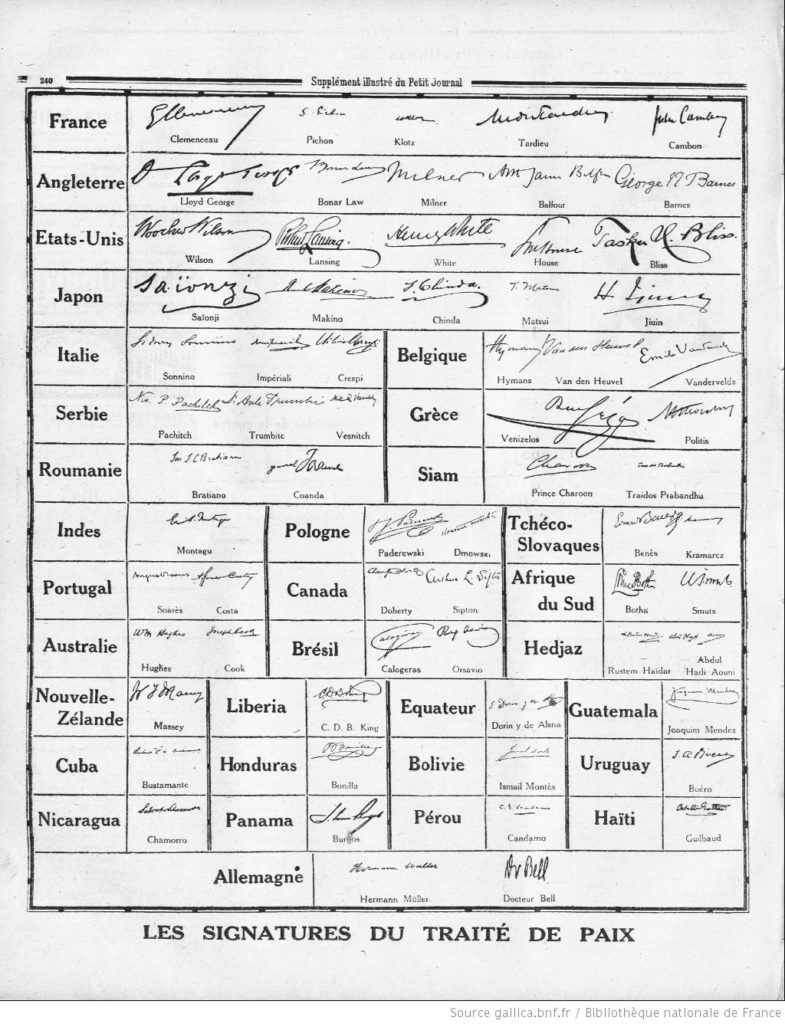 240
Supplément illustré du Petit Journal
France
Clemenceau Pichon Klotz Tardieu Cambon
Angleterre
Lloyd George Bonar Law Milner Balfour Barnes
Etats-Unis
Wilson Lansing White House Bliss
Japon
Saïonji Makino Chinda Matsui Jiuin
Italie
Sonnino Impériali Crespi
Belgique
Hymans Van den Heuvel Vandervelde
Serbie
Pachitch Trumbitc Vesnitch
Grèce
Venizelos Politis
Roumanie
Bratiano Coanda
Siam
Prince Charoon Traidos Prabandhu
Indes
Montagu
Pologne
Paderewski Dmowski
Tchéco-
Slovaques
Benès Kramarcz
Portugal
Soarès Costa
Canada
Doherty Sipton
Afrique
du Sud
Botha Smuts
Australie
Hughes Cook
Brésil
Calogeras Orsavio
Hedjaz
Rustem Haïdar Abdul
Hadi Aouni
Nouvelle-
Zélande
Massey
Liberia
C. D. B. King
Equateur
Dorin y de Alsna
Guatemala
Joaquim Mendez
Cuba
Bustamante
Honduras
Bonilla
Bolivie
Ismail Montès
Uruguay
Buéro
Nicaragua
Chamorro
Panama
Burgos
Pérou
Candamo
Haïti
Guilbaud
Allemagne
Hermann Müller Docteur Bell
LES SIGNATURES DU TRAITÉ DE PAIX
Source gallica.bnf.fr / Bibliothèque nationale de France